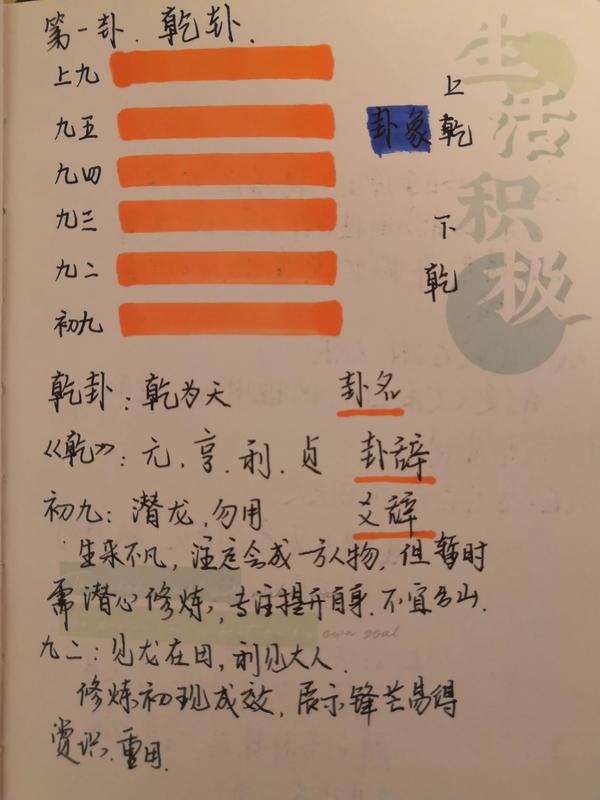 第一卦.乾卦.
上九
九五
九四
九三
九二
初九
卦象
上
乾
下
乾
生活
积极
乾卦:乾为天 卦名
《乾》:元,亨.利.贞 卦辞
初九:潜龙,勿用 爻辞
生来不凡,注定会成一方人物,但暂时
需潜心修炼,专注提升自身.不宜出山.
own goal
九二:见龙在田,利见大人.
修炼初现成效,展示锋芒易得
赏识.重用.